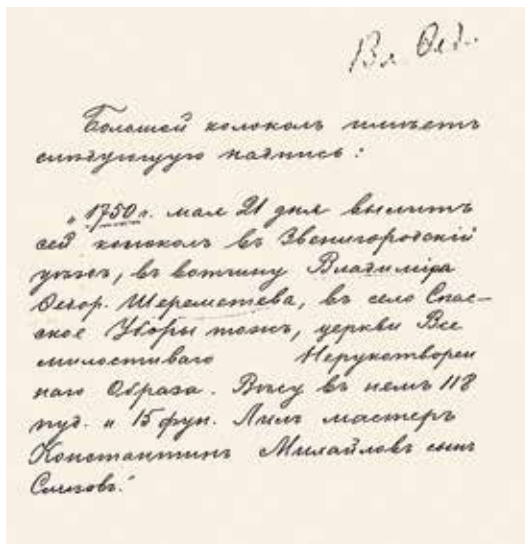 Вл. Ѳед.
Большой колоколъ имѣетъ
слѣдующую надпись:
„1750 г. мая 21 дня вылитъ
сей колоколъ въ Звенигородскій
уѣздъ, въ вотчину Владиміра
Ѳедор. Шереметева, въ село Спас-
ское Уборы тожъ, церкви Все
милостиваго Нерукотворен
наго Образа. Вѣсу въ немъ 118
пуд. и 15 фун. Лилъ мастеръ
Константинъ Михайловъ сынъ
Слизовъ."